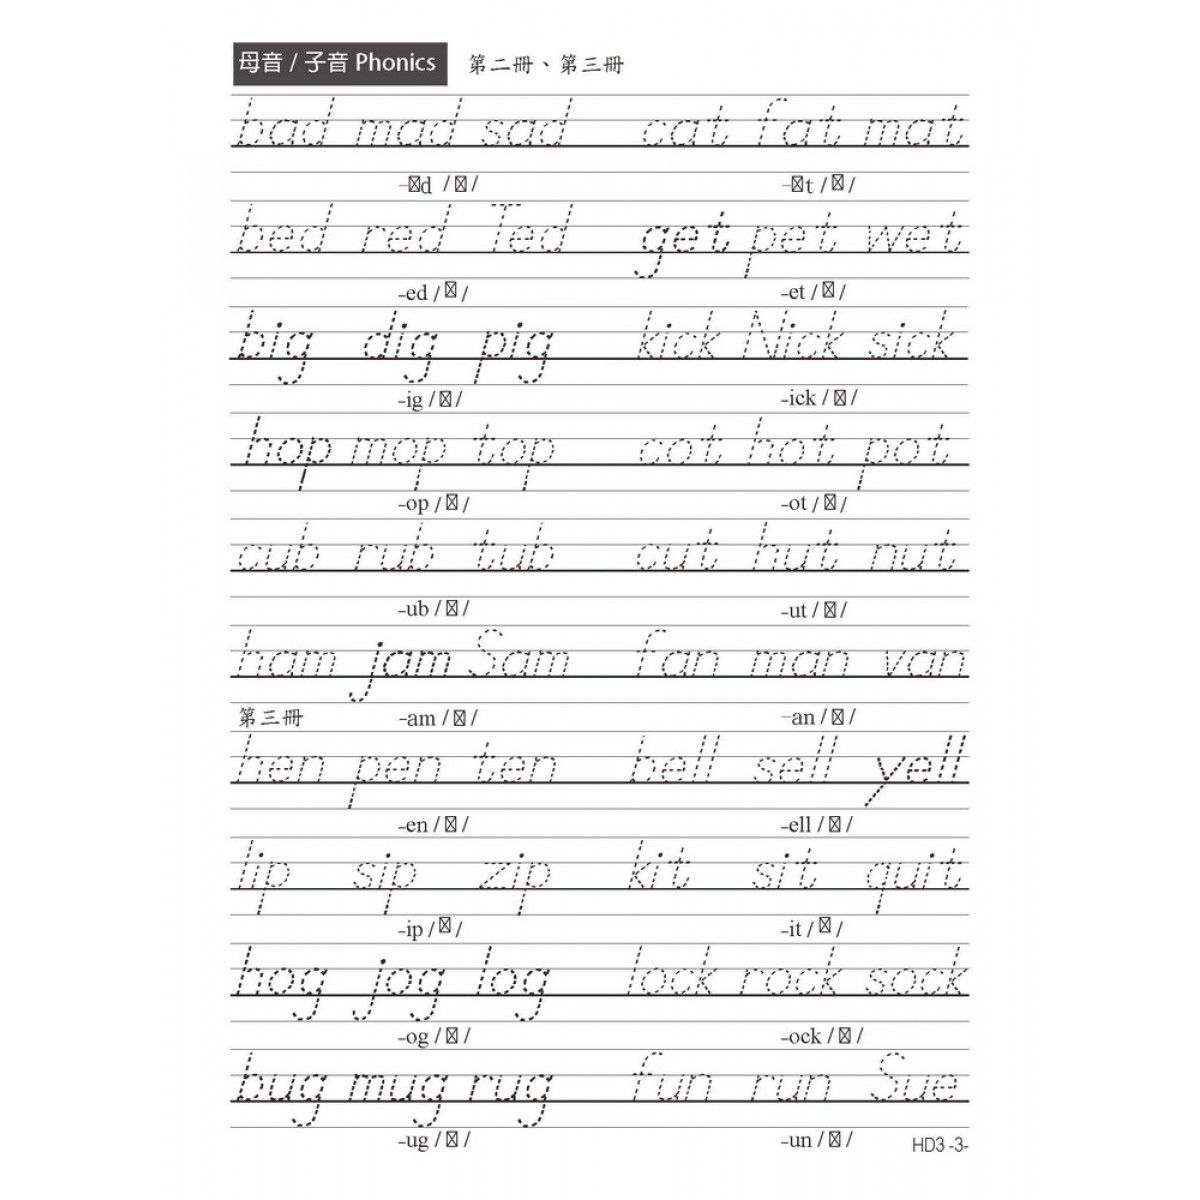 母音 / 子音 Phonics 第二冊、第三冊
bad mad sad cat fat mat
-☒d /☒/ -☒t /☒/
bed red Ted get pet wet
-ed /☒/ -et /☒/
big dig pig kick Nick sick
-ig /☒/ -ick /☒/
hop mop top cot hot pot
-op /☒/ -ot /☒/
cub rub tub cut hut nut
-ub /☒/ -ut /☒/
ham jam Sam fan man van
第三冊 -am /☒/ -an /☒/
hen pen ten bell sell yell
-en /☒/ -ell /☒/
lip sip zip kit sit quit
-ip /☒/ -it /☒/
hog jog log lock rock sock
-og /☒/ -ock /☒/
bug mug rug fun run Sue
-ug /☒/ -un /☒/ HD3 -3-